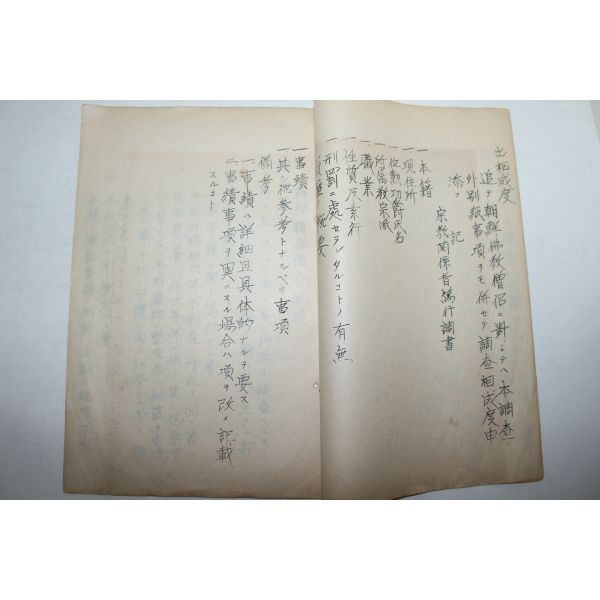 出相成度
追テ朝鮮佛教僧侶ニ對シテハ本調査
外別紙事項ヲモ併セテ調査相成度申
添フ
記
宗教関係者篤行調書
一本籍
一現住所
一位勲功爵氏名
一所属教宗派
一職業
一性質及素行
一刑罰ニ處セラレタルコトノ有無
一事績
一其ノ他参考トナルベキ事項
備考
一、事績ハ詳細且具体的ナルヲ要ス
二、事績事項ヲ異ニスル場合ハ項ヲ改メ記載
スルコト